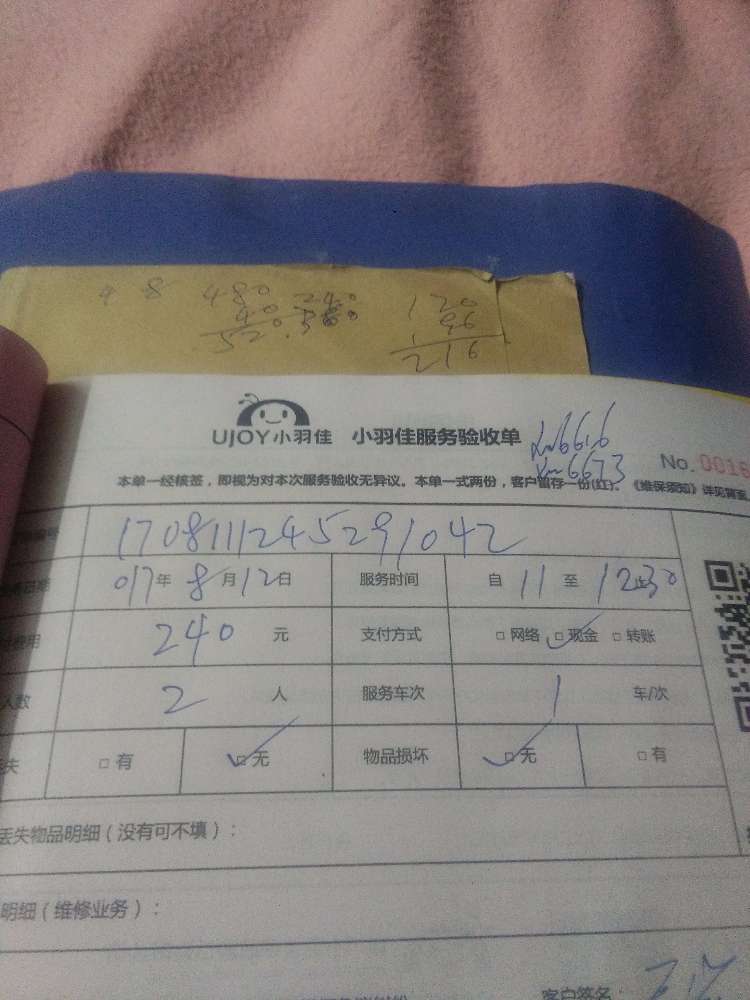 4 8 480 240 120
40 96
520 216
UJOY小羽佳 小羽佳服务验收单 6616
6673 No.0016
本单一经核签，即视为对本次服务验收无异议。本单一式两份，客户留存一份(红)。《维保须知》详见背面
1708111245291042
017年8月12日 服务时间 自 11 至 12:30
费用 240 元 支付方式 □网络 ☑现金 □转账
人数 2 人 服务车次 1 车/次
失 □有 ☑无 物品损坏 ☑无 □有
丢失物品明细（没有可不填）：
明细（维修业务）：
客户签名：